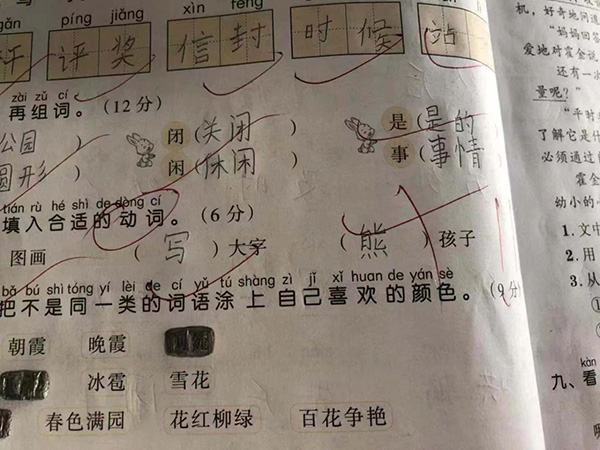 gǎn píng jiǎng xìn fēng
评 奖 信 封 时 候 站
zài zǔ cí
再组词。(12分)
公园 闭(关闭) 是(是的)
圆形) 闲(休闲) 事(事情)
tián rù hé shì de dòng cí
填入合适的动词。(6分)
图画 (写)大字 (熊)孩子
bǎ bú shì tóng yí lèi de cí yǔ tú shàng zì jǐ xǐ huan de yán sè
把不是同一类的词语涂上自己喜欢的颜色。(9分)
朝霞 晚霞
冰雹 雪花
春色满园 花红柳绿 百花争艳
机,好奇地问道
"妈妈回答
爱地对霍金说
还有一次
量呢?"
"平时
了解它是什
必须通过
霍金
幼小的心
1.文中
2.用
3.从
①
kàn
九、看